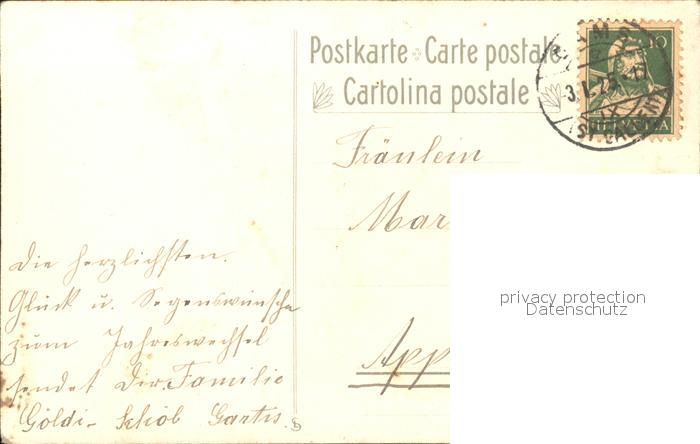 Postkarte Carte postale
Cartolina postale
10
HELVETIA
Fräulein
Mar
privacy protection
Datenschutz
App
Die herzlichsten
Glück u. Segenswünsche
zum Jahreswechsel
sendet Dir Familie
Göldi-Schöb Gartis.